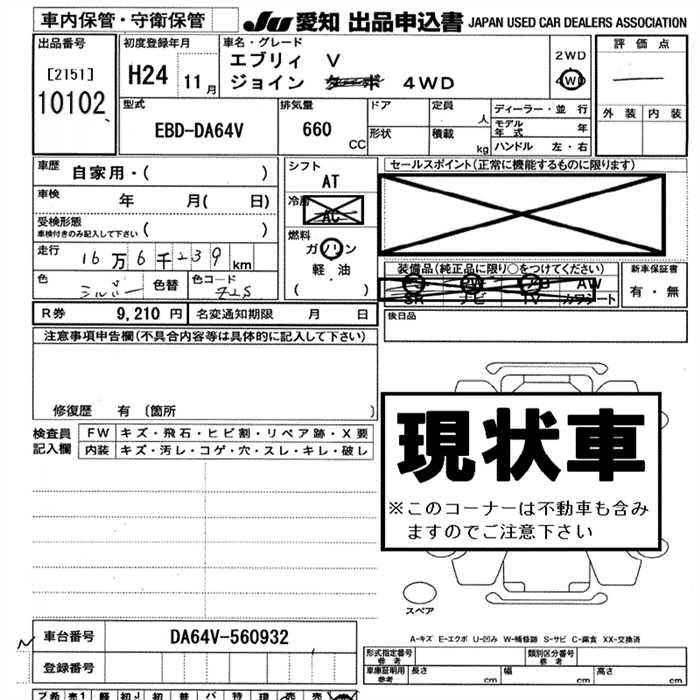 車内保管・守衛保管
JU 愛知 出品申込書 JAPAN USED CAR DEALERS ASSOCIATION
出品番号
[2151]
10102
初度登録年月
H24 11月
車名・グレード
エブリィ V
ジョイン ターボ 4WD
2WD
4WD
評価点
外装 内装
型式
EBD-DA64V
排気量
660
CC
ドア
形状
定員
人
積載
kg
ディーラー・並行
モデル年式 年
ハンドル 左・右
車歴 自家用・( )
車検 年 月( 日)
受検形態
車検付きのみ記入して下さい ( )
走行 16万6千239km
色 シルバー 色替 色コード Z2S
シフト
AT
冷房
AC
燃料
ガソリン
軽油
( )
セールスポイント(正常に機能するものに限ります)
装備品(純正品に限り○をつけてください)
PS PW AB AW
SR ナビ TV カワシート
新車保証書
有・無
R券 9,210円 名変通知期限 月 日
後日品
注意事項申告欄(不具合内容等は具体的に記入して下さい)
修復歴 有 〔箇所 〕
検査員
記入欄
FW キズ・飛石・ヒビ割・リペア跡・X要
内装 キズ・汚レ・コゲ・穴・スレ・キレ・破レ
現状車
※このコーナーは不動車も含み
ますのでご注意下さい
スペア
A-キズ E-エクボ U-凹み W-補修跡 S-サビ C-腐食 XX-交換済
車台番号 DA64V-560932
登録番号
形式指定番号
参考
類別区分番号
参考
車庫証明用
参考
長さ cm 幅 cm 高さ cm